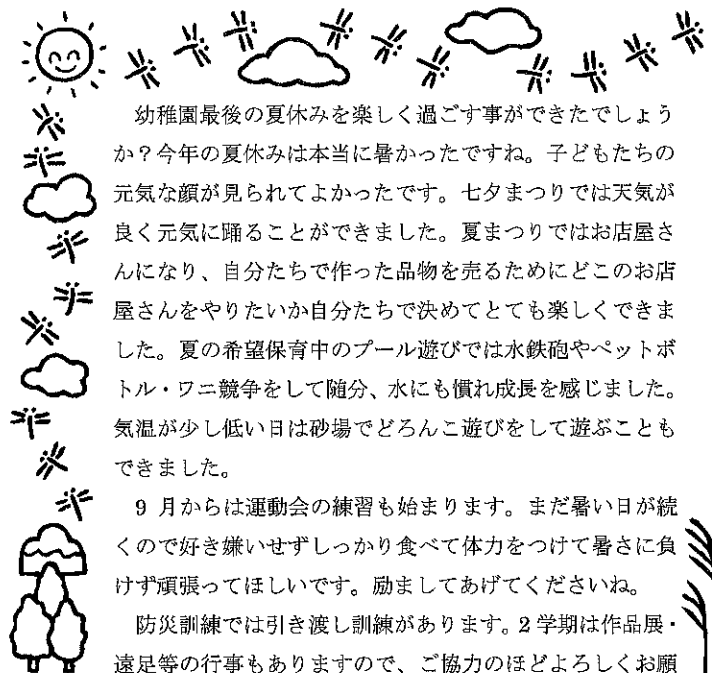 幼稚園最後の夏休みを楽しく過ごす事ができたでしょう
か？今年の夏休みは本当に暑かったですね。子どもたちの
元気な顔が見られてよかったです。七夕まつりでは天気が
良く元気に踊ることができました。夏まつりではお店屋さ
んになり、自分たちで作った品物を売るためにどこのお店
屋さんをやりたいか自分たちで決めてとても楽しくできま
した。夏の希望保育中のプール遊びでは水鉄砲やペットボ
トル・ワニ競争をして随分、水にも慣れ成長を感じました。
気温が少し低い日は砂場でどろんこ遊びをして遊ぶことも
できました。
9 月からは運動会の練習も始まります。まだ暑い日が続
くので好き嫌いせずしっかり食べて体力をつけて暑さに負
けず頑張ってほしいです。励ましてあげてくださいね。
防災訓練では引き渡し訓練があります。2 学期は作品展・
遠足等の行事もありますので、ご協力のほどよろしくお願